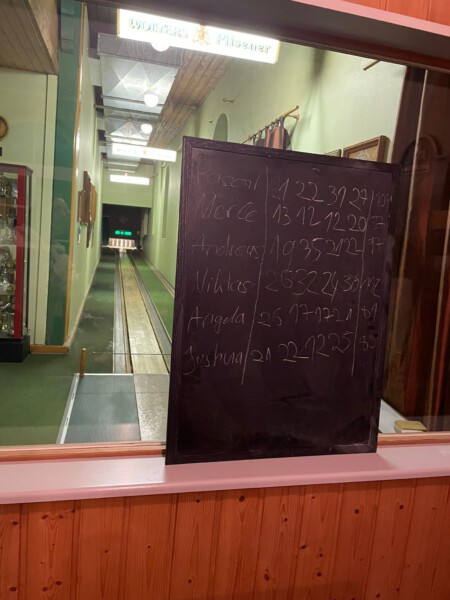 WOLTERS Pilsener
Pascal 1 22 31 27
Merle 13 12 12 20 57
Andreas 19 35 21 22 97
Niklas 26 32 24 30 112
Angela 25 17 17 21
Joshua 21 22 12 25